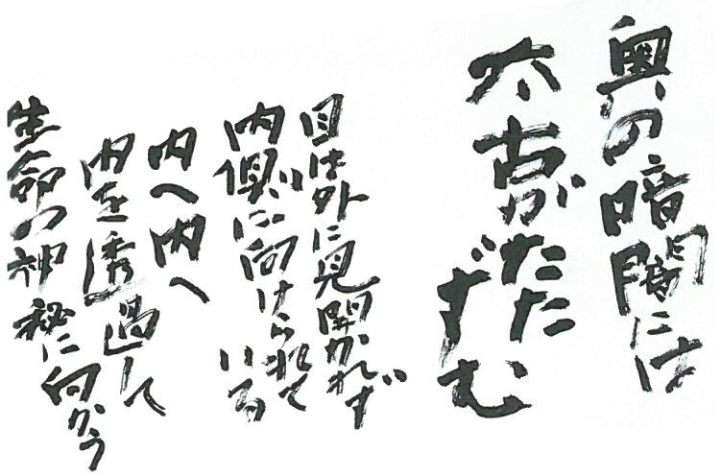 奥の暗闇には
太古がたた
ずむ
目は外に見開かれず
内側に向けられて
いる
内へ内へ
内を透過して
生命の神秘に向かう